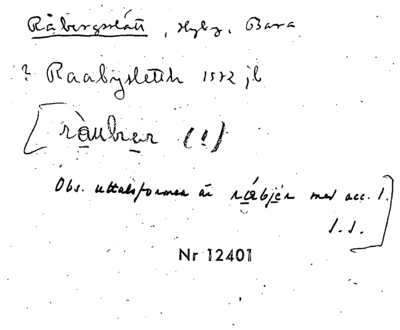 Råbergsslätt, Hyby, Bara
? Raabysletth 1582 jb
[ràubrær (!)
Obs. uttalsformen är råbjær med acc. 1.
S.S.]
Nr 12401